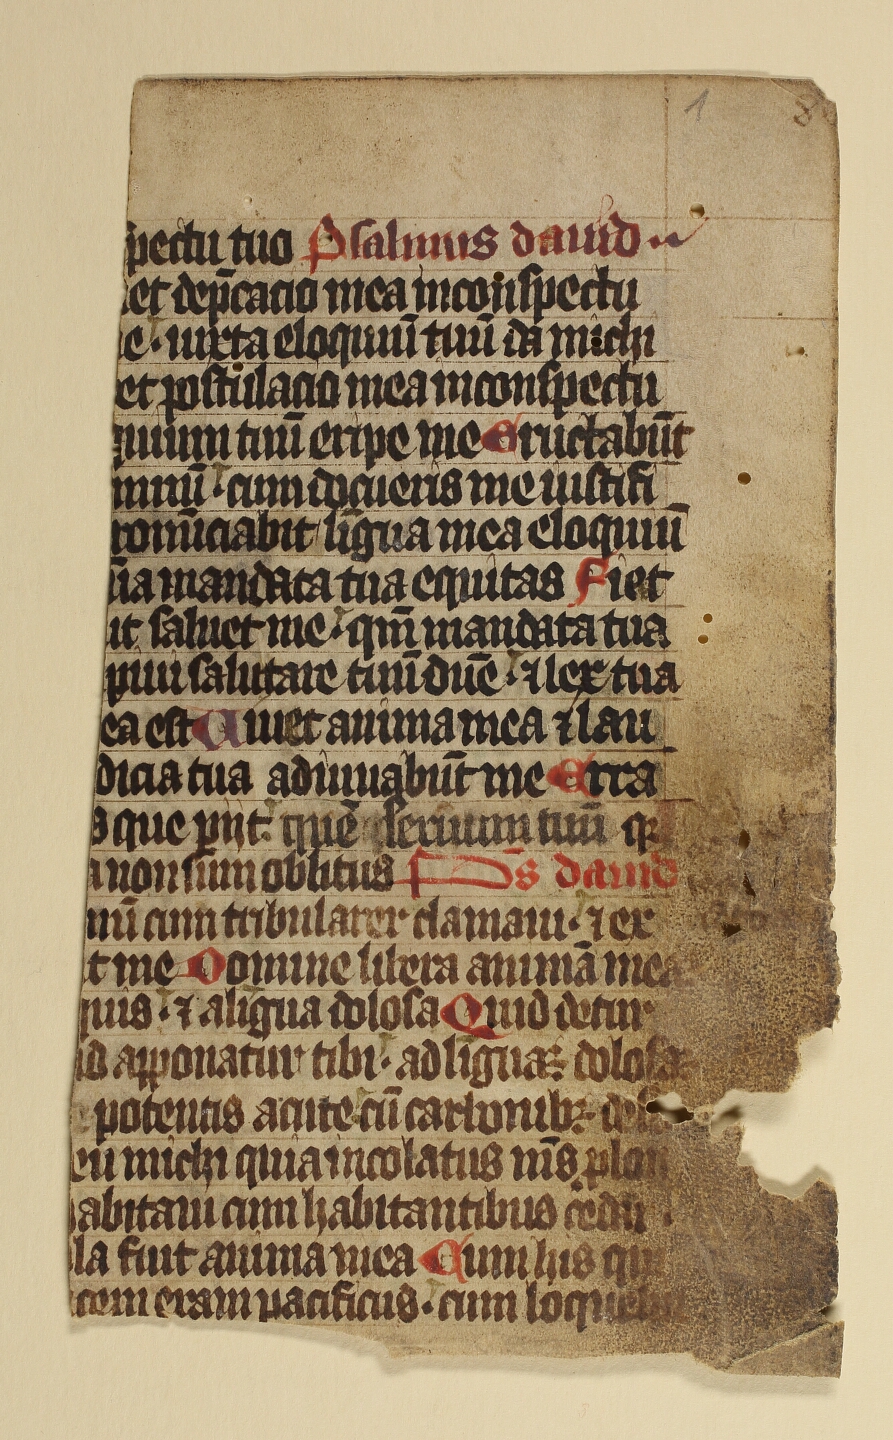 1 8
spectu tuo Psalmus dauid
et dep̄cacio mea inconspectu
e · iuxta eloquiū tuū da michi
et postulacio mea inconspectu
quium tuū eripe me Eructabūt
mnū · cum docueris me iustifi
ronūciabit lingua mea eloquiū
ia mandata tua equitas Fiet
ut saluet me · qm̄ mandata tua
piui salutare tuū dn̄e · ⁊ lex tua
ea est Uiuet anima mea ⁊ lau
dicia tua adiuuabūt me Erra
s que pijt · quē seruum tuū
a non sum oblitus Ps dauid
inū cum tribularer clamaui · ⁊ ex
it me Domine libera animā mea
quis · ⁊ a lingua dolosa Quid detur
id apponatur tibi · ad linguaꝫ dolosaꝫ
potentis acute cū carbonibꝫ
eu michi quia incolatus m̄s
habitaui cum habitantibus
la fuit anima mea Cum hiis
cem eram pacificus · cum